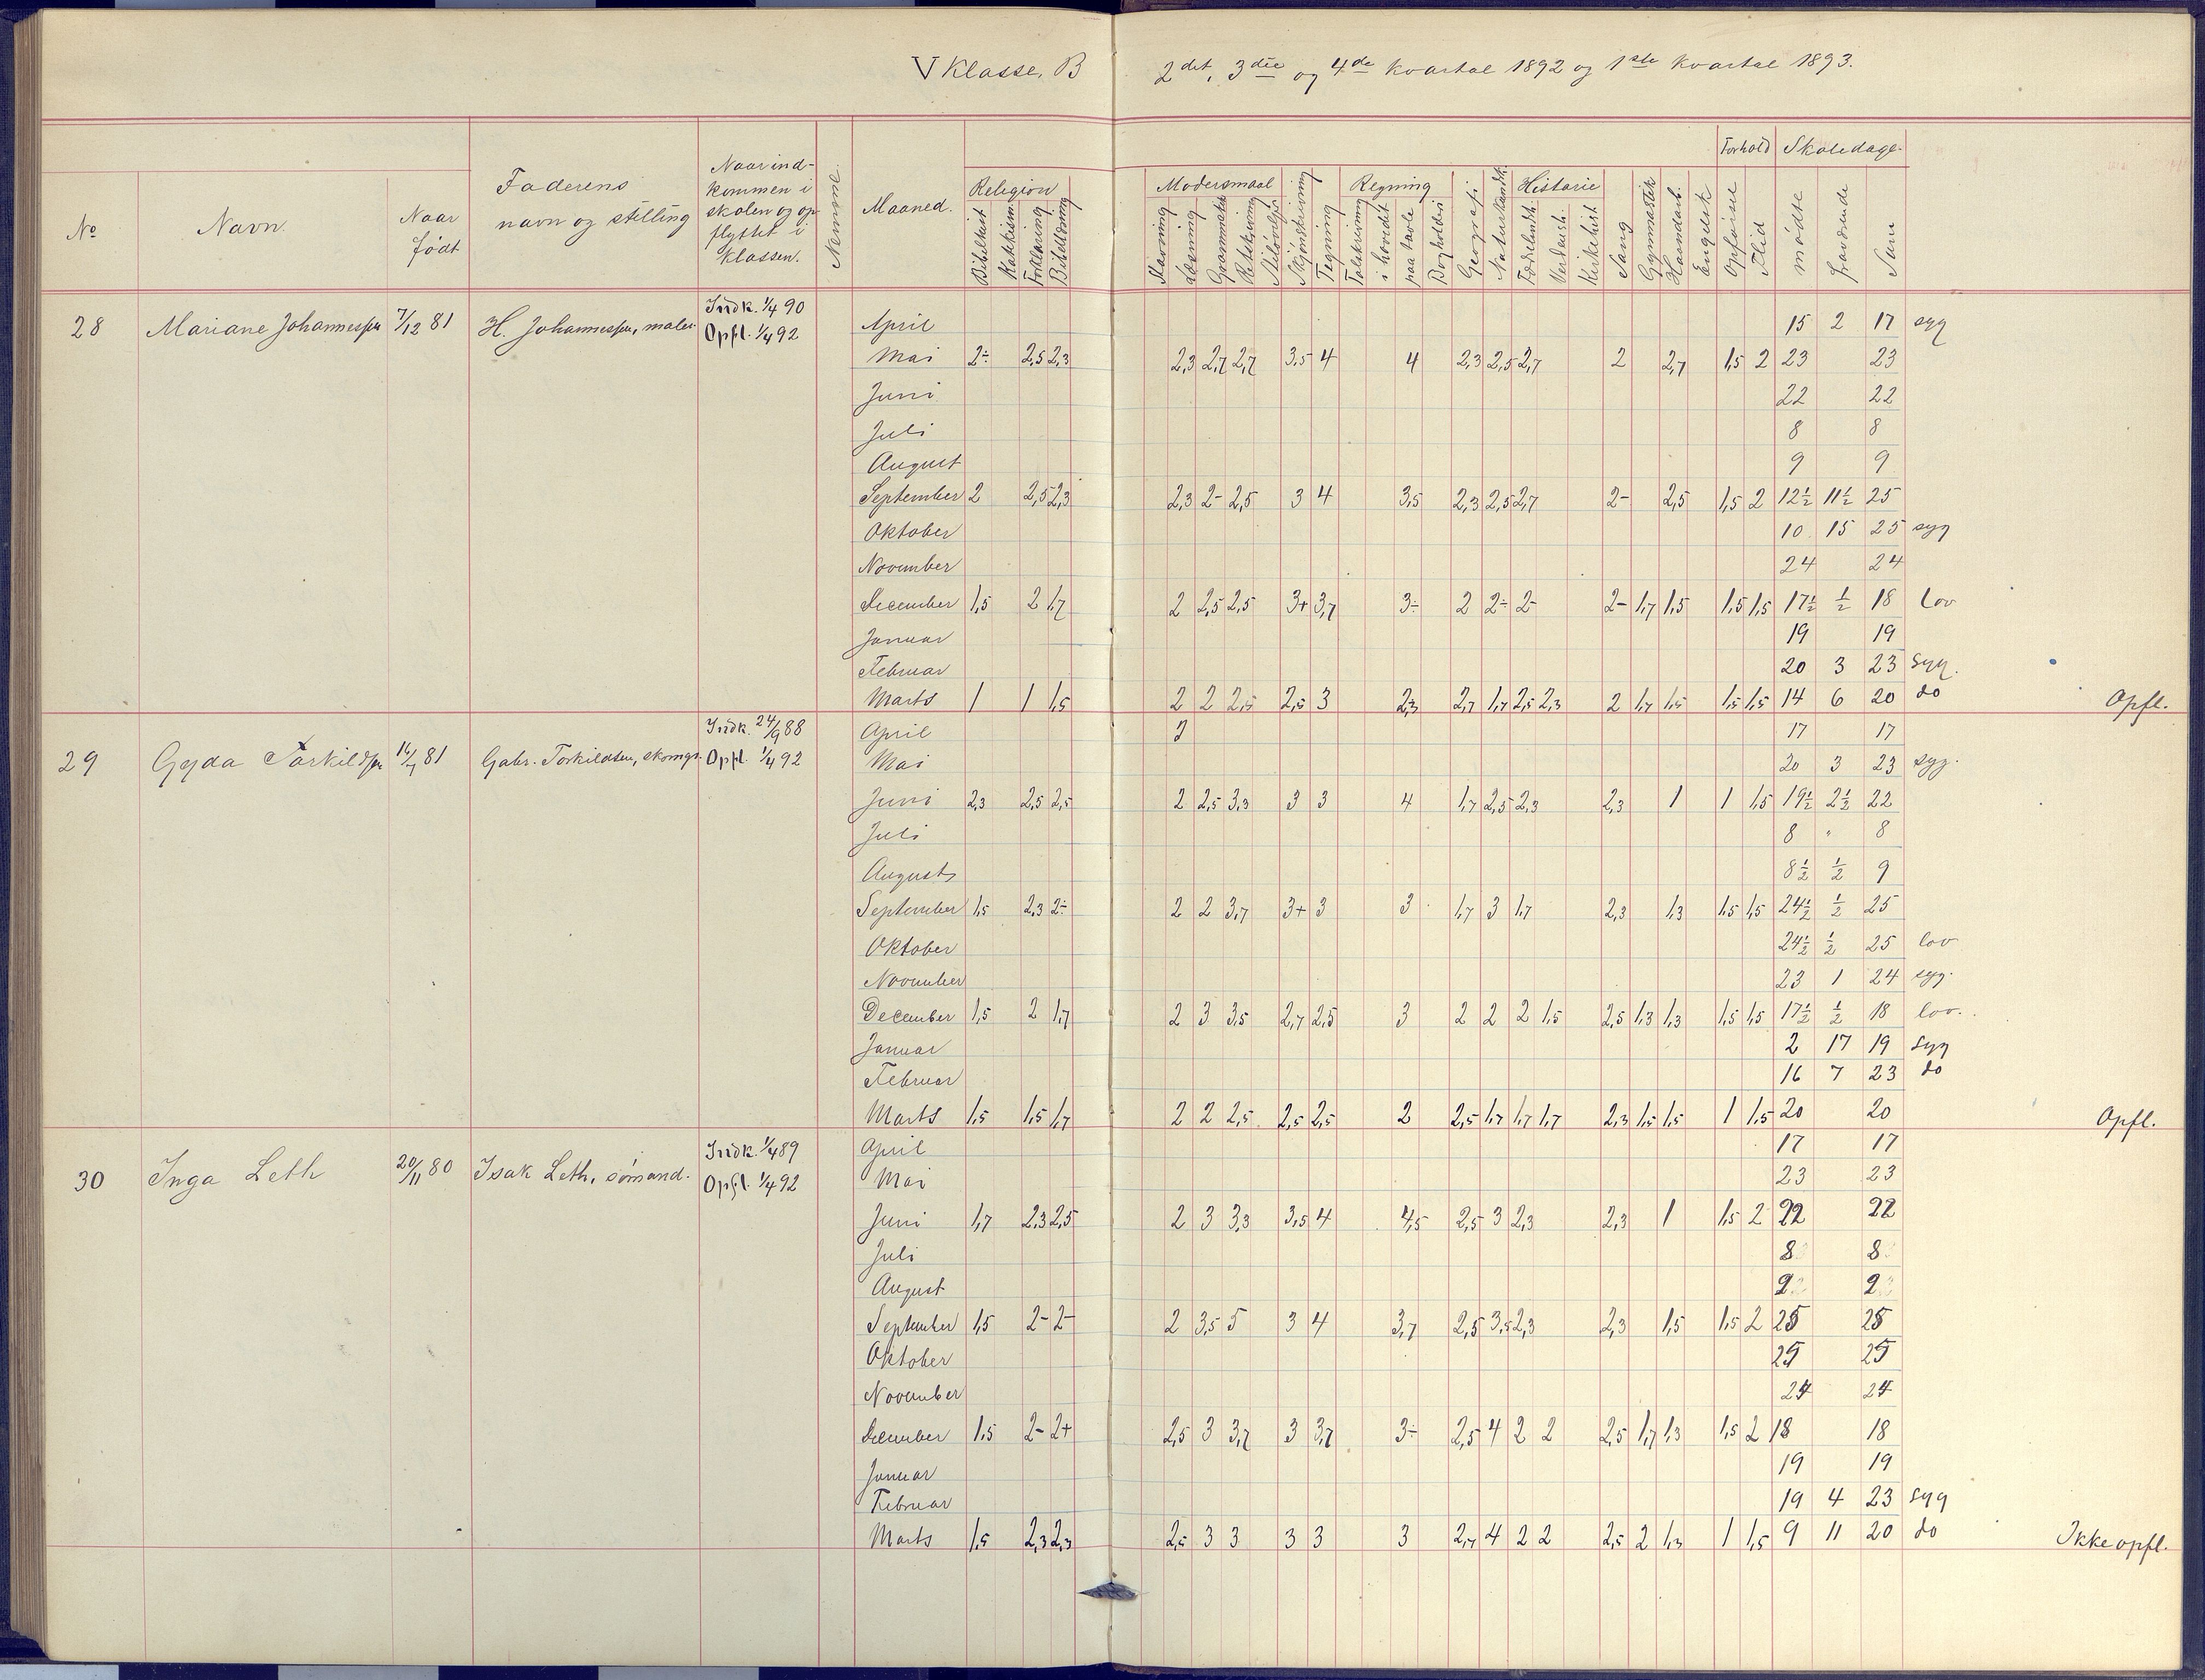 V Klasse, B 2det, 3die og 4de kvartal 1892 og 1ste kvartal 1893.
Forhold Skoledage.
No Navn. Naar født Faderens navn og stilling Naar indkommen i skolen og opflyttet i klassen. Nemme. Maaned. Religion Modersmaal Regning Historie
Bibelhist Katekism. Forklaring Bibellæsning Stavning Læsning Grammatik Retskrivning Stiløvelse Skjønskrivning Tegning Talskrivning i hovedet paa tavle Bogholderi Geografi Naturkundsk. Fædrelandsh. Verdensh. Kirkehist Sang Gymnastik Haandarb. Engelsk Opførsel Flid mødte fraværende Sum
28 Mariane Johannessen 7/12 81 H. Johannessen, maler Indk. 1/4 90 Opfl. 1/4 92
April 15 2 17 syg
Mai 2÷ 2,5 2,3 2,3 2,7 2,7 3,5 4 4 2,3 2,5 2,7 2 2,7 1,5 2 23 23
Juni 22 22
Juli 8 8
August 9 9
September 2 2,5 2,3 2,3 2- 2,5 3 4 3,5 2,3 2,5 2,7 2- 2,5 1,5 2 12½ 11½ 25
Oktober 10 15 25 syg
November 24 24
December 1,5 2 1,7 2 2,5 2,5 3+ 3,7 3÷ 2 2÷ 2- 2- 1,7 1,5 1,5 1,5 17½ ½ 18 lov
Januar 19 19
Februar 20 3 23 syg.
Marts 1 1 1,5 2 2 2,5 2,5 3 2,3 2,7 1,7 2,5 2,3 2 1,7 1,5 1,5 1,5 14 6 20 do Opfl.
29 Gyda Torkildsen 16/7 81 Gabr. Torkildsen, skomgr. Indk. 24/9 88 Opfl. 1/4 92
April 2 17 17
Mai 20 3 23 syg.
Juni 2,3 2,5 2,5 2 2,5 3,3 3 3 4 1,7 2,5 2,3 2,3 1 1 1,5 19½ 2½ 22
Juli 8 " 8
August 8½ ½ 9
September 1,5 2,3 2÷ 2 2 3,7 3+ 3 3 1,7 3 1,7 2,3 1,3 1,5 1,5 24½ ½ 25
Oktober 24½ ½ 25 lov
November 23 1 24 syg.
December 1,5 2 1,7 2 3 3,5 2,7 2,5 3 2 2 2 1,5 2,5 1,3 1,3 1,5 1,5 17½ ½ 18 lov.
Januar 2 17 19 syg
Februar 16 7 23 do
Marts 1,5 1,5 1,7 2 2 2,5 2,5 2,5 2 2,5 1,7 1,7 1,7 2,3 1,5 1,5 1 1,5 20 20 Opfl.
30 Inga Leth 20/11 80 Isak Leth, sømand. Indk. 1/4 89 Opfl. 1/4 92
April 17 17
Mai 23 23
Juni 1,7 2,3 2,5 2 3 3,3 3,5 4 4,5 2,5 3 2,3 2,3 1 1,5 2 22 22
Juli 8 8
August 9 9
September 1,5 2- 2- 2 3,5 5 3 4 3,7 2,5 3,5 2,3 2,3 1,5 1,5 2 25 25
Oktober 25 25
November 24 24
December 1,5 2- 2+ 2,5 3 3,7 3 3,7 3÷ 2,5 4 2 2 2,5 1,7 1,3 1,5 2 18 18
Januar 19 19
Februar 19 4 23 syg
Marts 1,5 2,3 2,3 2,5 3 3 3 3 3 2,7 4 2 2 2,5 2 1,3 1 1,5 9 11 20 do Ikke opfl.